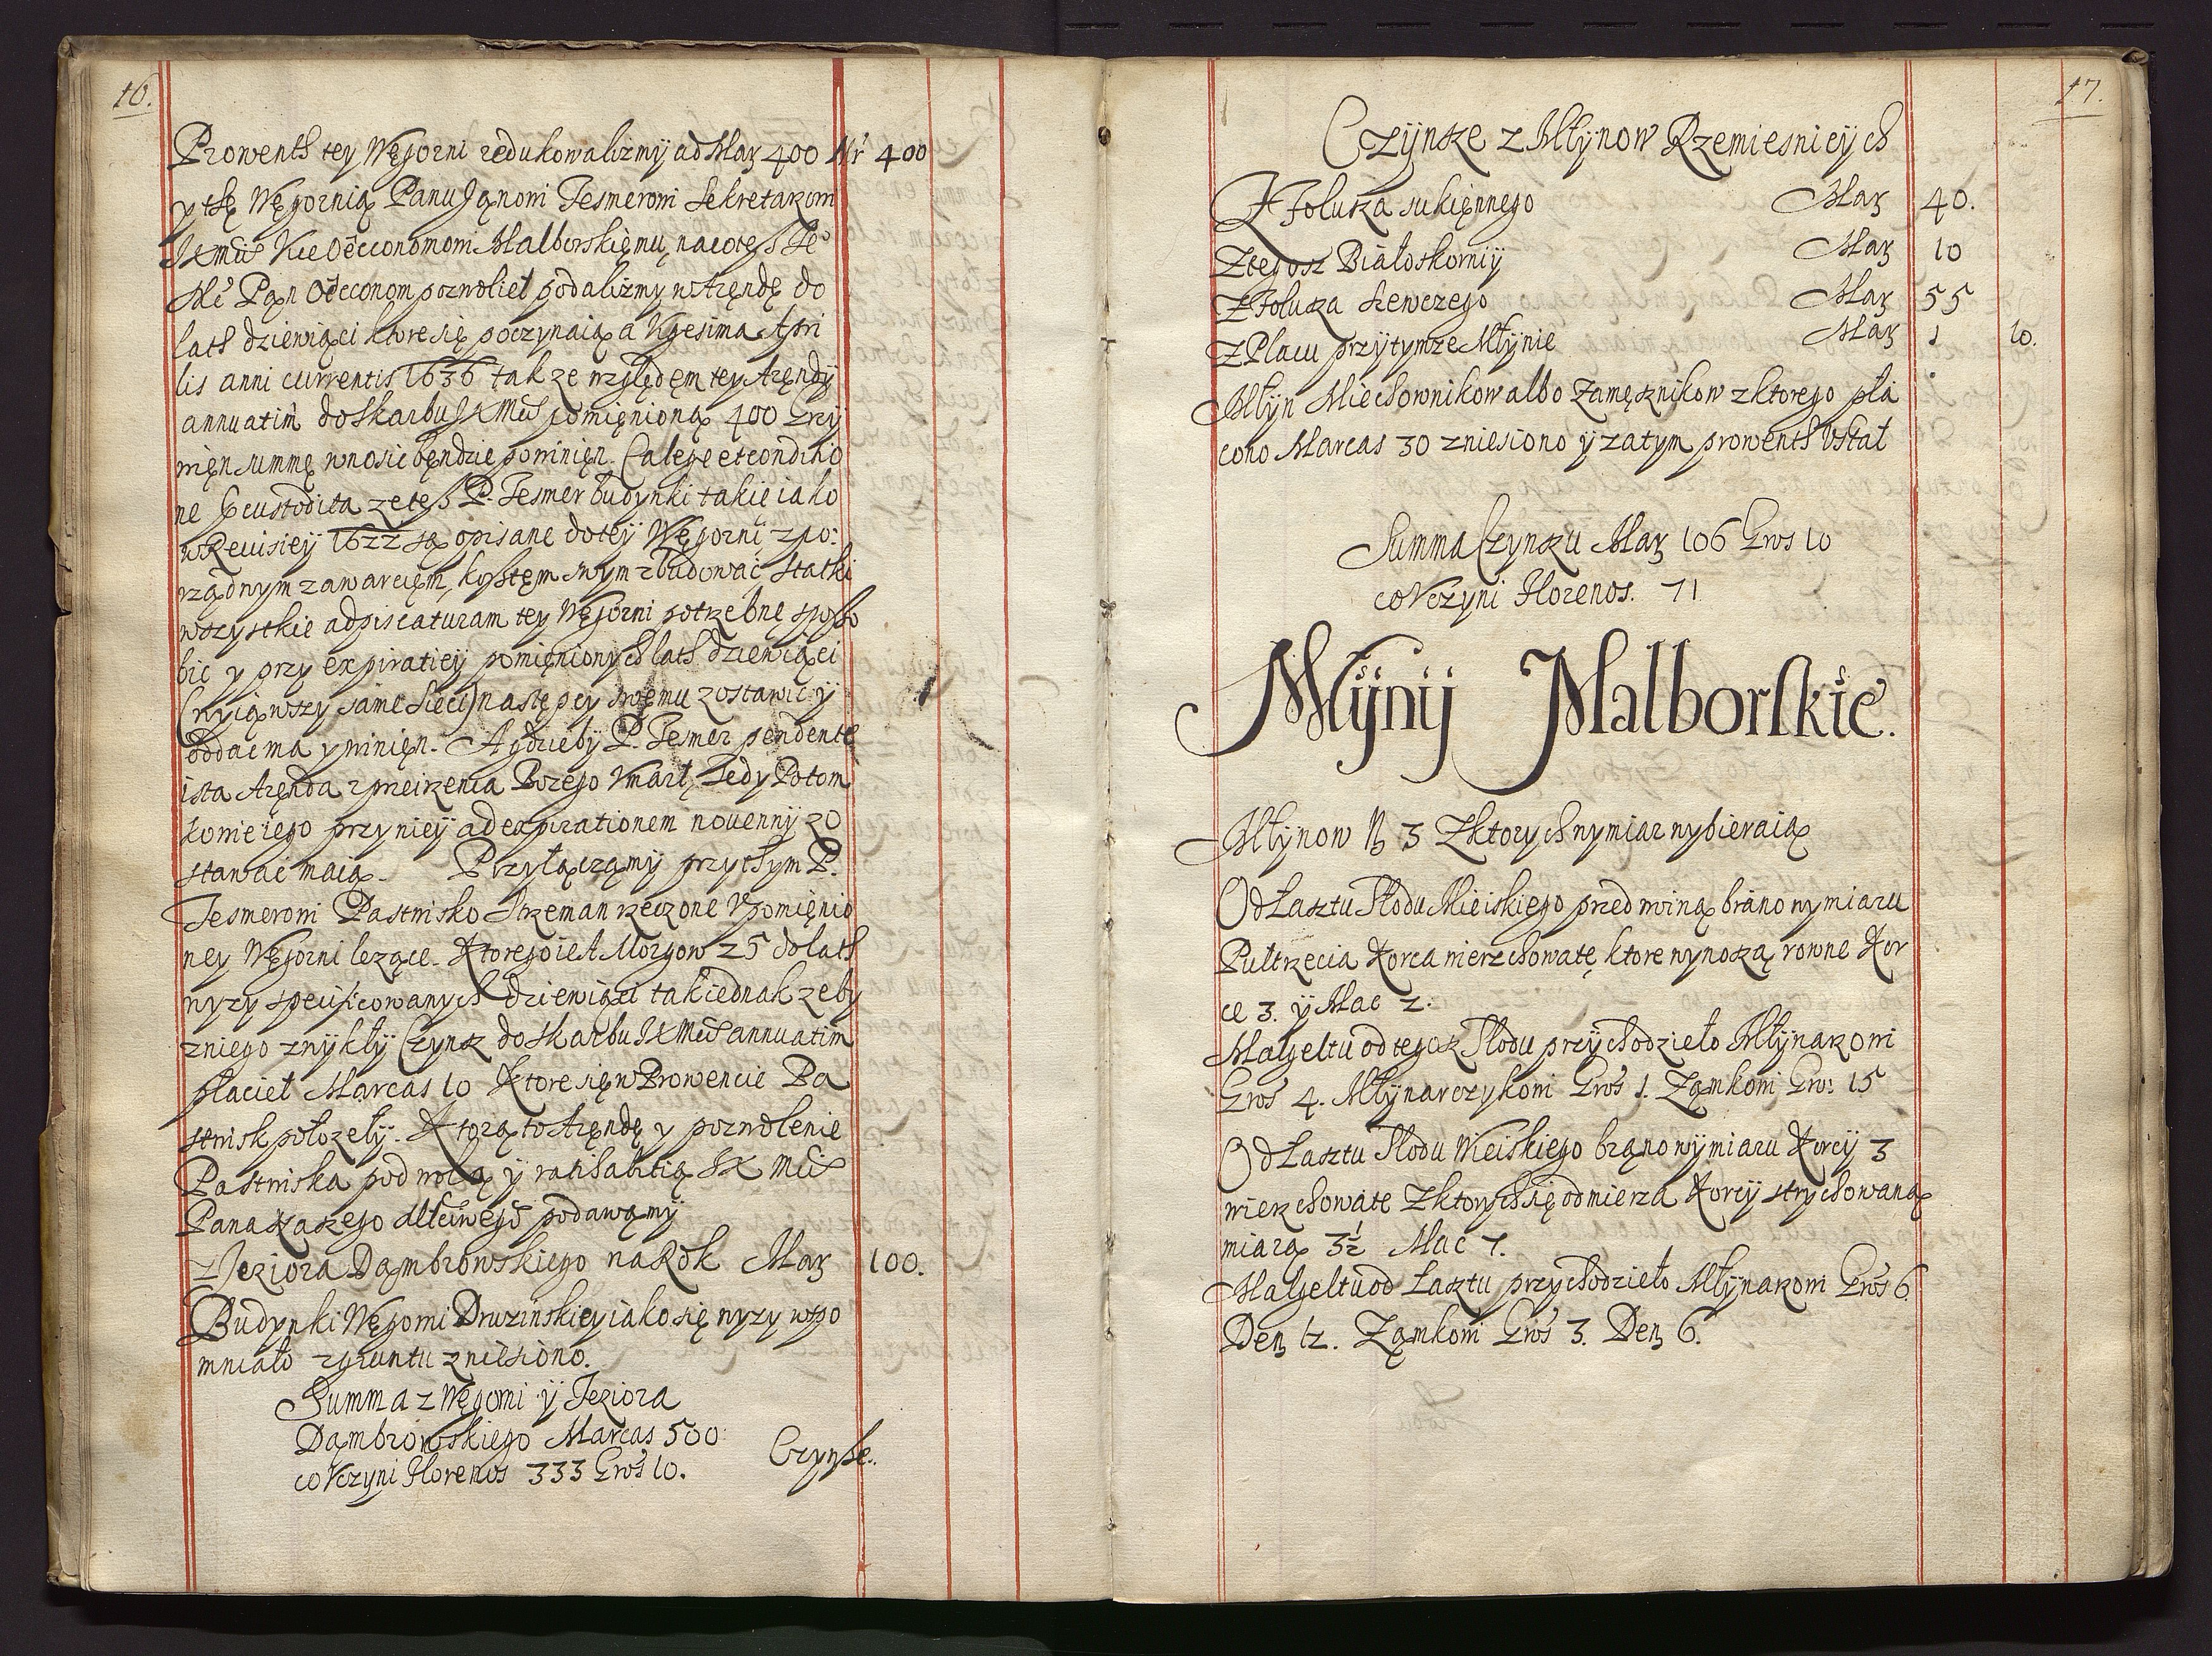 16.
Prowenth tey Węgorni redukowalizmÿ ad Mar 400 Mr 400
y thę Węgornią Panu Janowi Tesmerowi Sekretarzowi
Oeconomowi Malborskięmu, na co tesz Je°
Mć Pąn Oeconom pozwoliel podalizmy w Arędę do
lath dziewiąci ktore się poczynaią a Vigesima Apri
lis anni currentis 1636 tak ze względęm tey Arędÿ
annuatim do Skarbu JKMći pomięnioną 400 Grzÿ
więn summę wnosic bęndzie powinięn. Ca lege et conditio
ne custodita ze tesz P. Tesmer budynki takie iako
w Reuisieÿ 1622 są opisane do teÿ Węgorni z po:
rządnym zawarcięm, kosztęm swym zbudować, statki
wszystkie ad piscaturam tey Węgorni potrzebnę sposo
bic y przy expiratieÿ pomięnionych lath dziewiąci
(wyiąwszy same sieci) nastepcy swęmu zostawic ÿ
oddac ma y winięn. A gdzieby P. Tesmer pendente
ista Aręnda z przeirzenia Bozego Vmarł, Tedy Potom
kowie iego przy nieÿ ad expirationem nouenny zo
stawać maią. Przyłączamÿ przythym P.
Tesmerowi Pastwisko Strzeman rzeczone v pomięnio
ney Węgorni lezące. Ktorego iest Morgow 25 do lath
wyzy specificowanych dziewiąci tak iednak zeby
z niego zwykłÿ Czynsz do Skarbu JKMći annuatim
płaciel Marcas 10 Ktore się w Prowencie Pa
stwisk połozełÿ. Ktorą to Aręndę y pozwolenie
Pastwiska pod wolą ÿ ratihabitią JK Mći
Pana Naszego Młciwego podawąmÿ
z Jeziora Dąmbrowskiego na Rok Mar 100.
Budynki Węgorni Druzinskieÿ iako się wyzy wspo
mniało z gruntu zniesiono.
Summa z Węgorni ÿ Jeziora
Dąmbrowskiego Marcas 500:
co Vczyni Florenos 333 Gros 10.
Czynsze.
17.
Czÿnsze z Młÿnow Rzemiesniczÿch
Z Folusza sukięnnego Mar 40.
Z tegosz Białoskorniÿ Mar 10
Z Folusza szewczego Mar 55
Z Placu przÿ tymze Młÿnie Mar 1 10.
Młÿn Miechownikow albo Zamęsznikow z ktorego pła
cono Marcas 30 zniesiono ÿ zatym prowenth Vstał
Summa Czynszu Mar 106 Gros 10
co Vczyni Florenos. 71
Młÿnÿ Malborskie.
Młÿnow N 3 Z ktorych wymiar wybieraią
Od Łasztu Słodu Mieiskiego przed woiną bráno wymiaru
Pułtrzecia Korca wierzchowatę, ktore wynoszą rowne Kor
ce 3. ÿ Mac 2.
Malgeltu od tegosz Słodu przÿchodzieło Młÿnarzowi
Gros 4. Młÿnarczykowi Gros 1. Ząmkowi Gro: 15
Od Łasztu Słodu Wieiskiego bráno wÿmiaru Korcÿ 3
wierzchowate z ktorÿch się odmierza Korcÿ strychowaną
miarą 3½ Mac 7.
Malgeltu od Łasztu przychodzieło Młÿnarzowi Gros 6
Den 12. Ząmkowi Gros 3. Den 6.